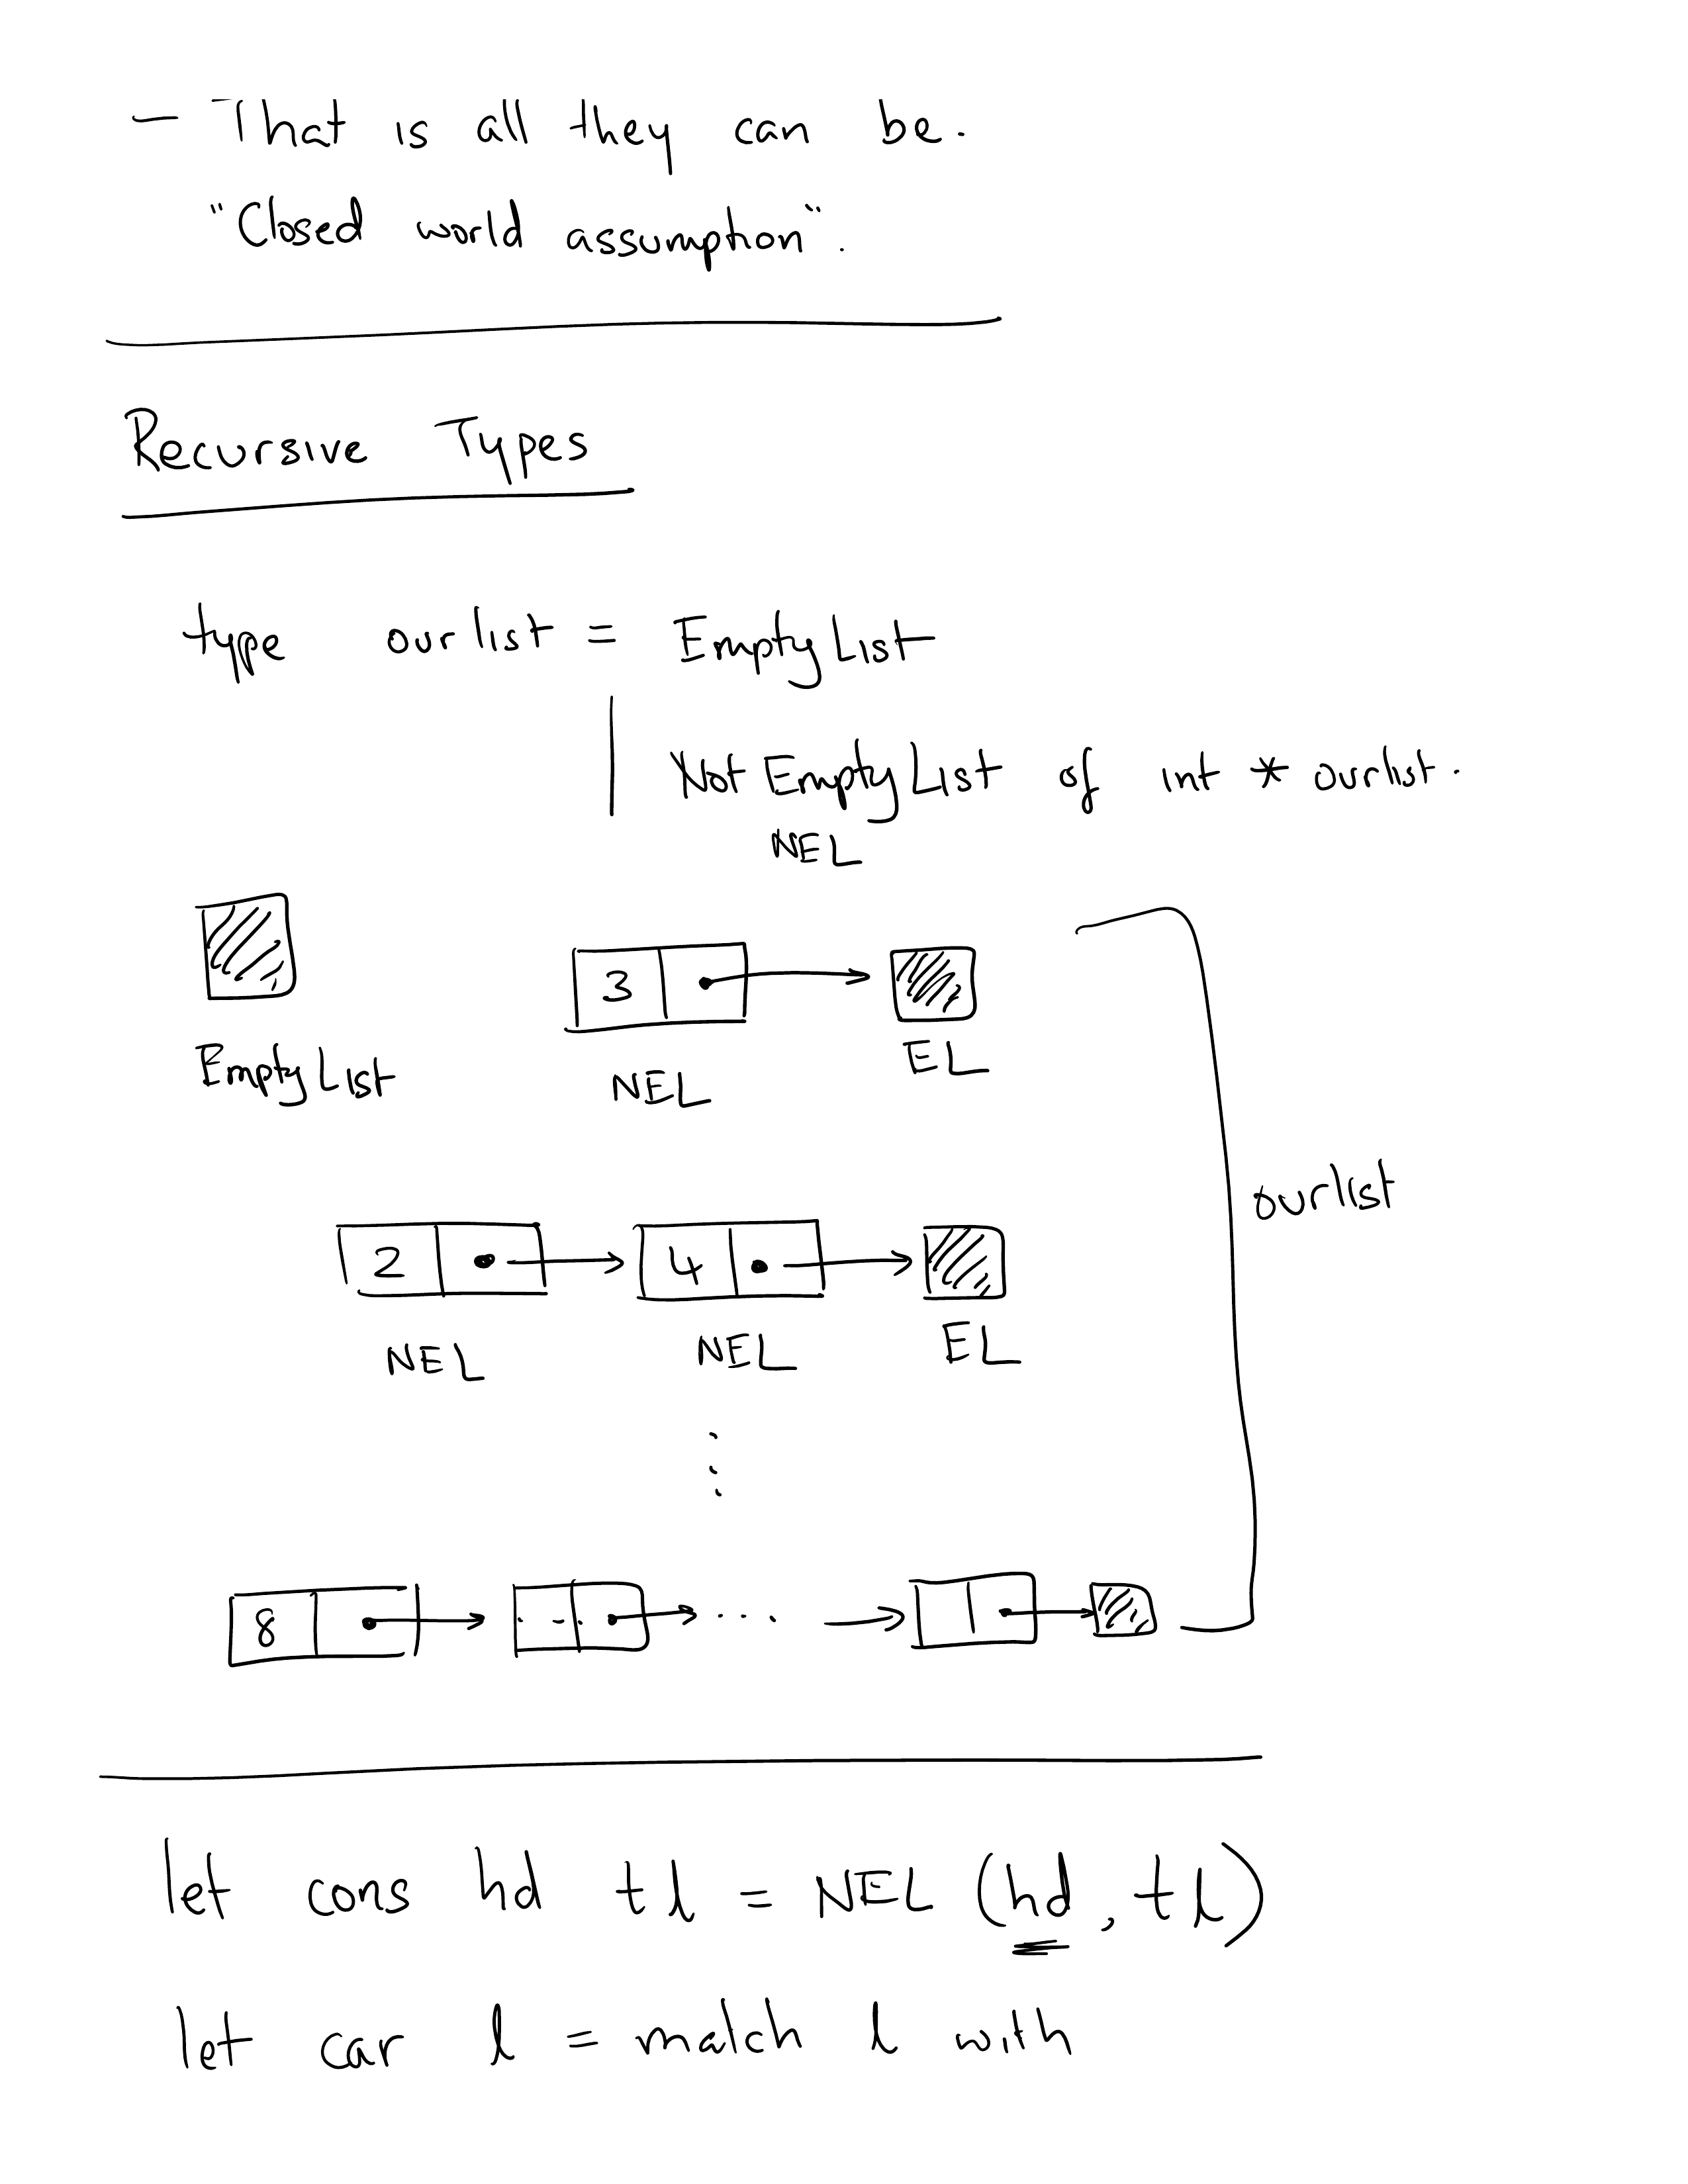 — That is all they can be.
"Closed world assumption".
Recursive Types
type ourlist = EmptyList
| NotEmptyList of int * ourlist.
NEL
3
EmptyList NEL EL
ourlist
2 4
NEL NEL EL
⋮
8 --. ...
let cons hd tl = NEL (hd, tl)
let car l = match l with